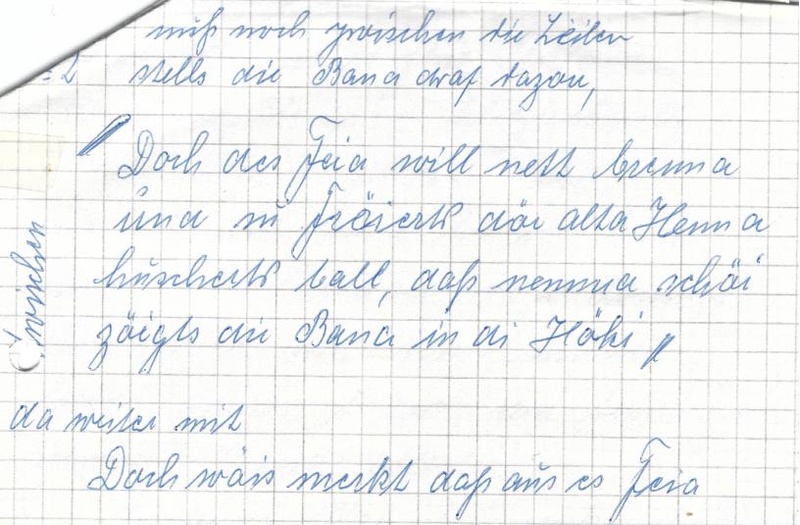 muß noch zwischen die Zeilen
stells die Bana draf dazou,
"Doch des Feia will nett brenna
und su fröierts döi alta Henna
huscherts ball, daß nemma schöi
zöigts die Bana in di Höhi"
zwischen
da weiter mit
Doch wöis merkt daß aus es Feia